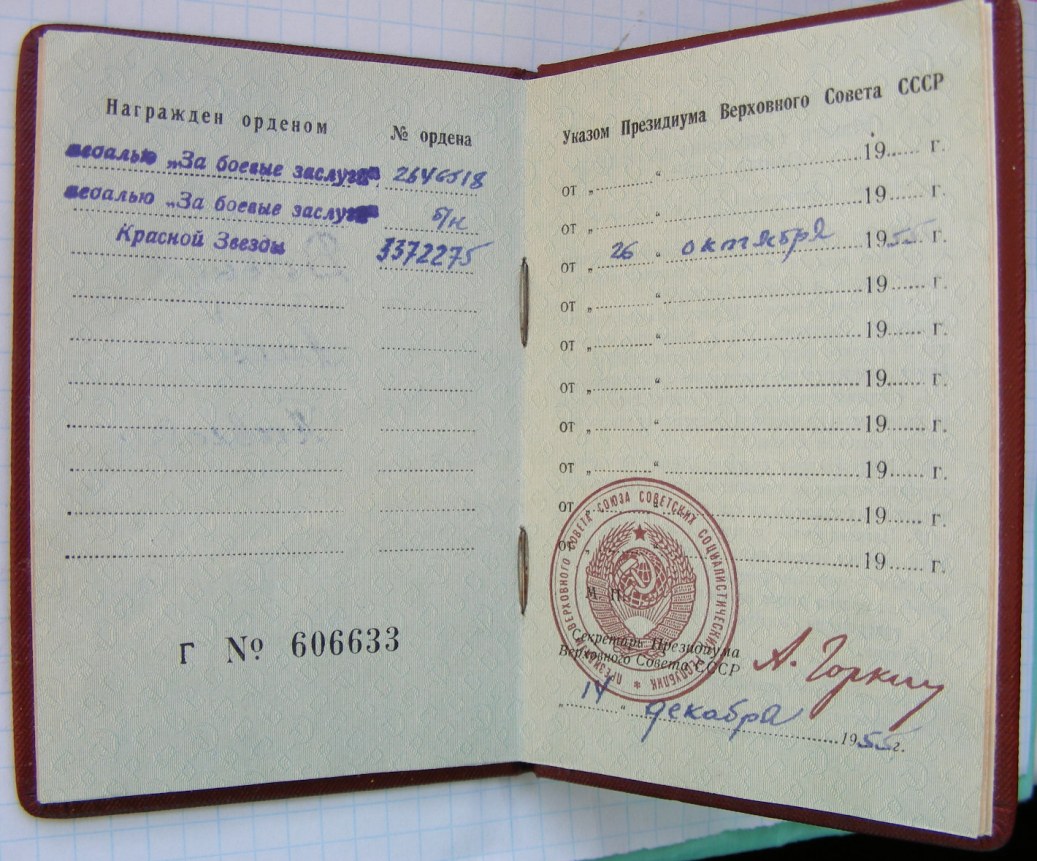 Награжден орденом № ордена
медалью „За боевые заслуги" 2646518
медалью „За боевые заслуги" б/н
Красной Звезды 3372275
Г № 606633
Указом Президиума Верховного Совета СССР
от „ “ 19 г.
от „ “ 19 г.
от „ 26 “ октября 1955 г.
от „ “ 19 г.
от „ “ 19 г.
от „ “ 19 г.
от „ “ 19 г.
от „ “ 19 г.
от „ “ 19 г.
от „ 19 г.
М. П.
ПРЕЗИДИУМ ВЕРХОВНОГО СОВЕТА СОЮЗА СОВЕТСКИХ СОЦИАЛИСТИЧЕСКИХ РЕСПУБЛИК
Секретарь Президиума
Верховного Совета СССР
А. Горкин
„ 14 “ декабря 1955 г.